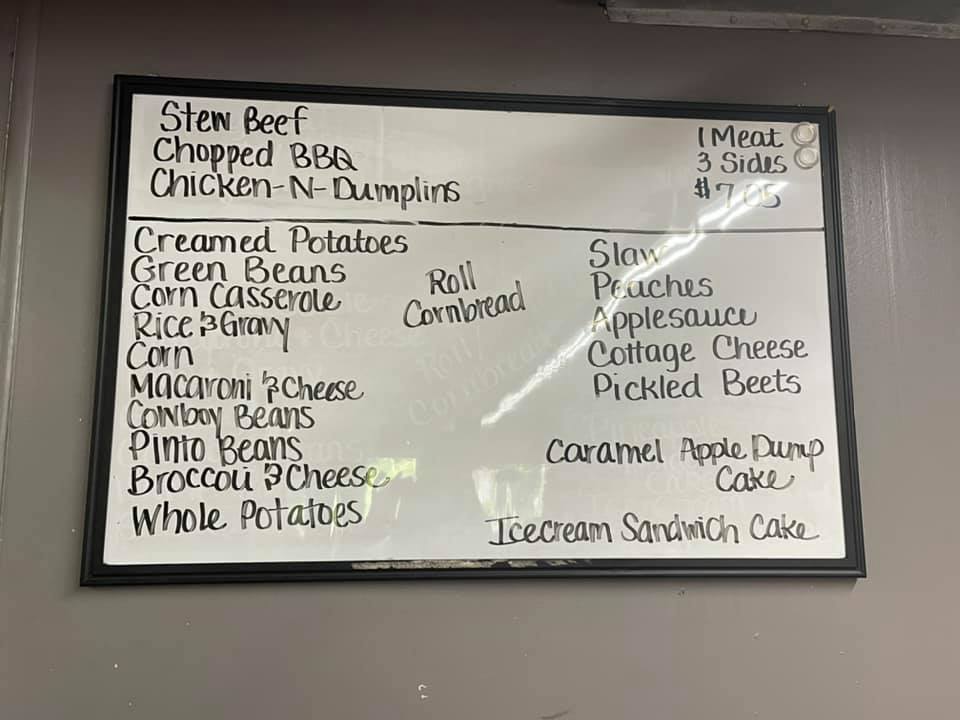 Stew Beef
Chopped BBQ
Chicken-N-Dumplins
1 Meat
3 Sides
$7.05
Creamed Potatoes
Green Beans
Corn Casserole
Rice & Gravy
Corn
Macaroni & Cheese
Cowboy Beans
Pinto Beans
Broccoli & Cheese
Whole Potatoes
Roll
Cornbread
Slaw
Peaches
Applesauce
Cottage Cheese
Pickled Beets
Caramel Apple Dump
Cake
Icecream Sandwich Cake